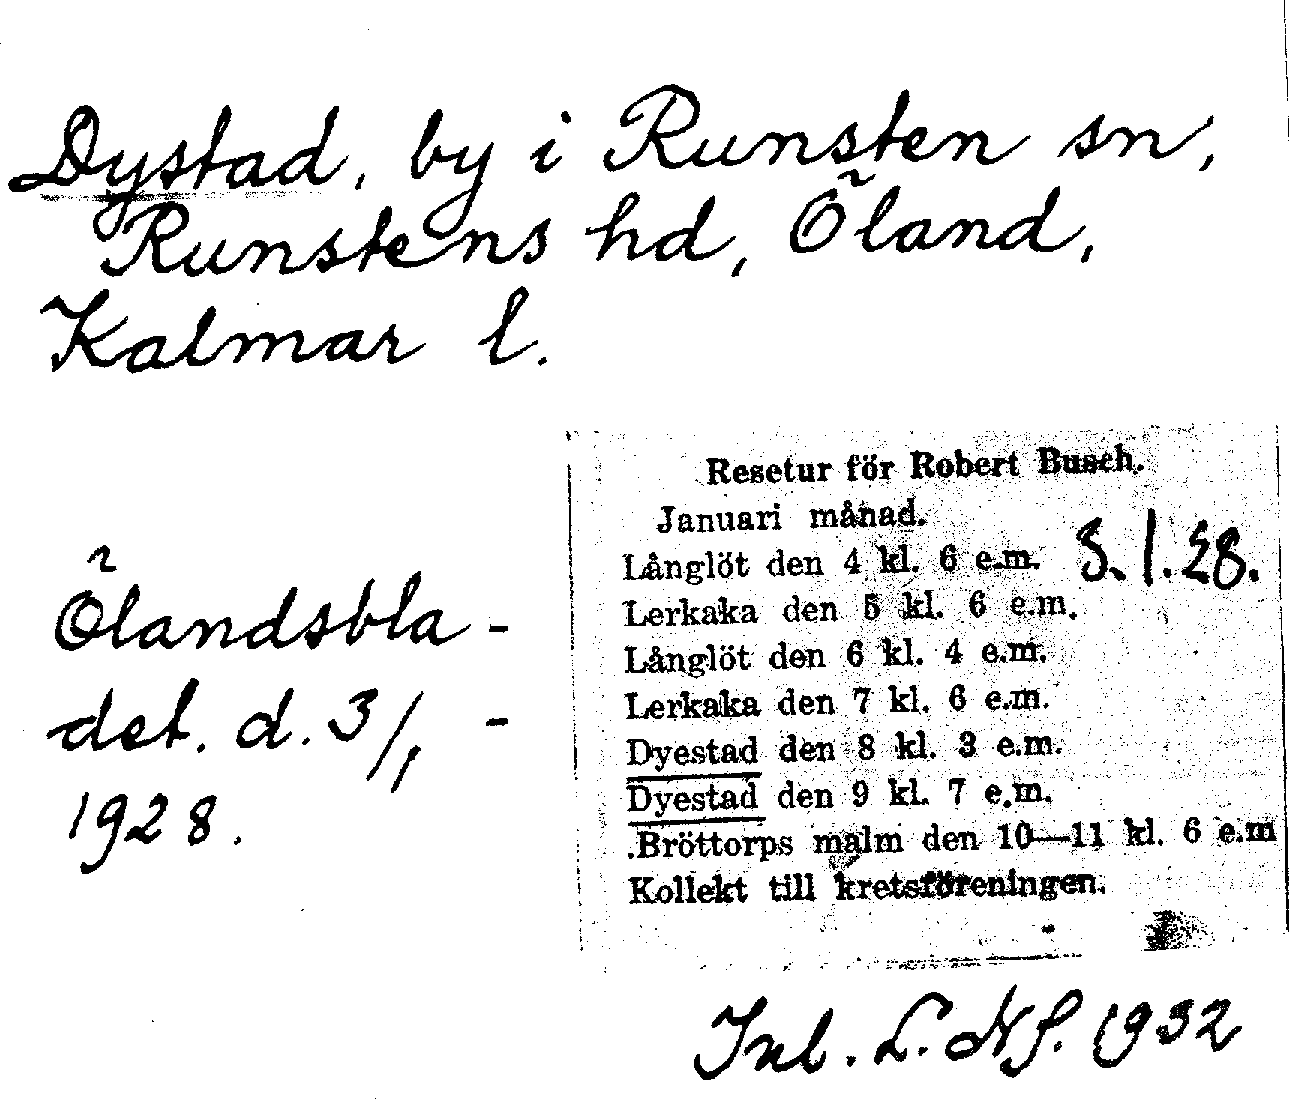 Dystad, by i Runsten sn,
Runstens hd, Öland,
Kalmar l.
Ölandsbla-
det. d. 3/1 -
1928.
Resetur för Robert Busch.
Januari månad.
3.1.28.
Långlöt den 4 kl. 6 e.m.
Lerkaka den 5 kl. 6 e.m.
Långlöt den 6 kl. 4 e.m.
Lerkaka den 7 kl. 6 e.m.
Dyestad den 8 kl. 3 e.m.
Dyestad den 9 kl. 7 e.m.
Bröttorps malm den 10—11 kl. 6 e.m
Kollekt till kretsföreningen.
Inl. 1932